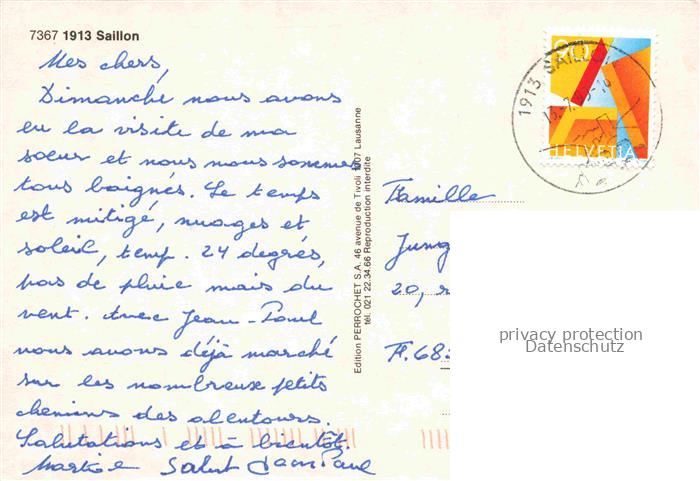 7367 1913 Saillon
Mes chers,
Dimanche nous avons
eu la visite de ma
soeur et nous nous sommes
tous baignés. Le temps
est mitigé, nuages et
soleil, temp. 24 degrés,
pas de pluie mais du
vent. Avec Jean-Paul
nous avons déjà marché
sur les nombreux petits
chemins des alentours.
Salutations et à bientôt.
Salut Jean Paul
Edition PERROCHET S.A. 46 avenue de Tivoli 1007 Lausanne
tél. 021 22.34.66 Reproduction interdite
1913 SAILLON
HELVETIA
Famille
Jung
20, r
F. 68
privacy protection
Datenschutz